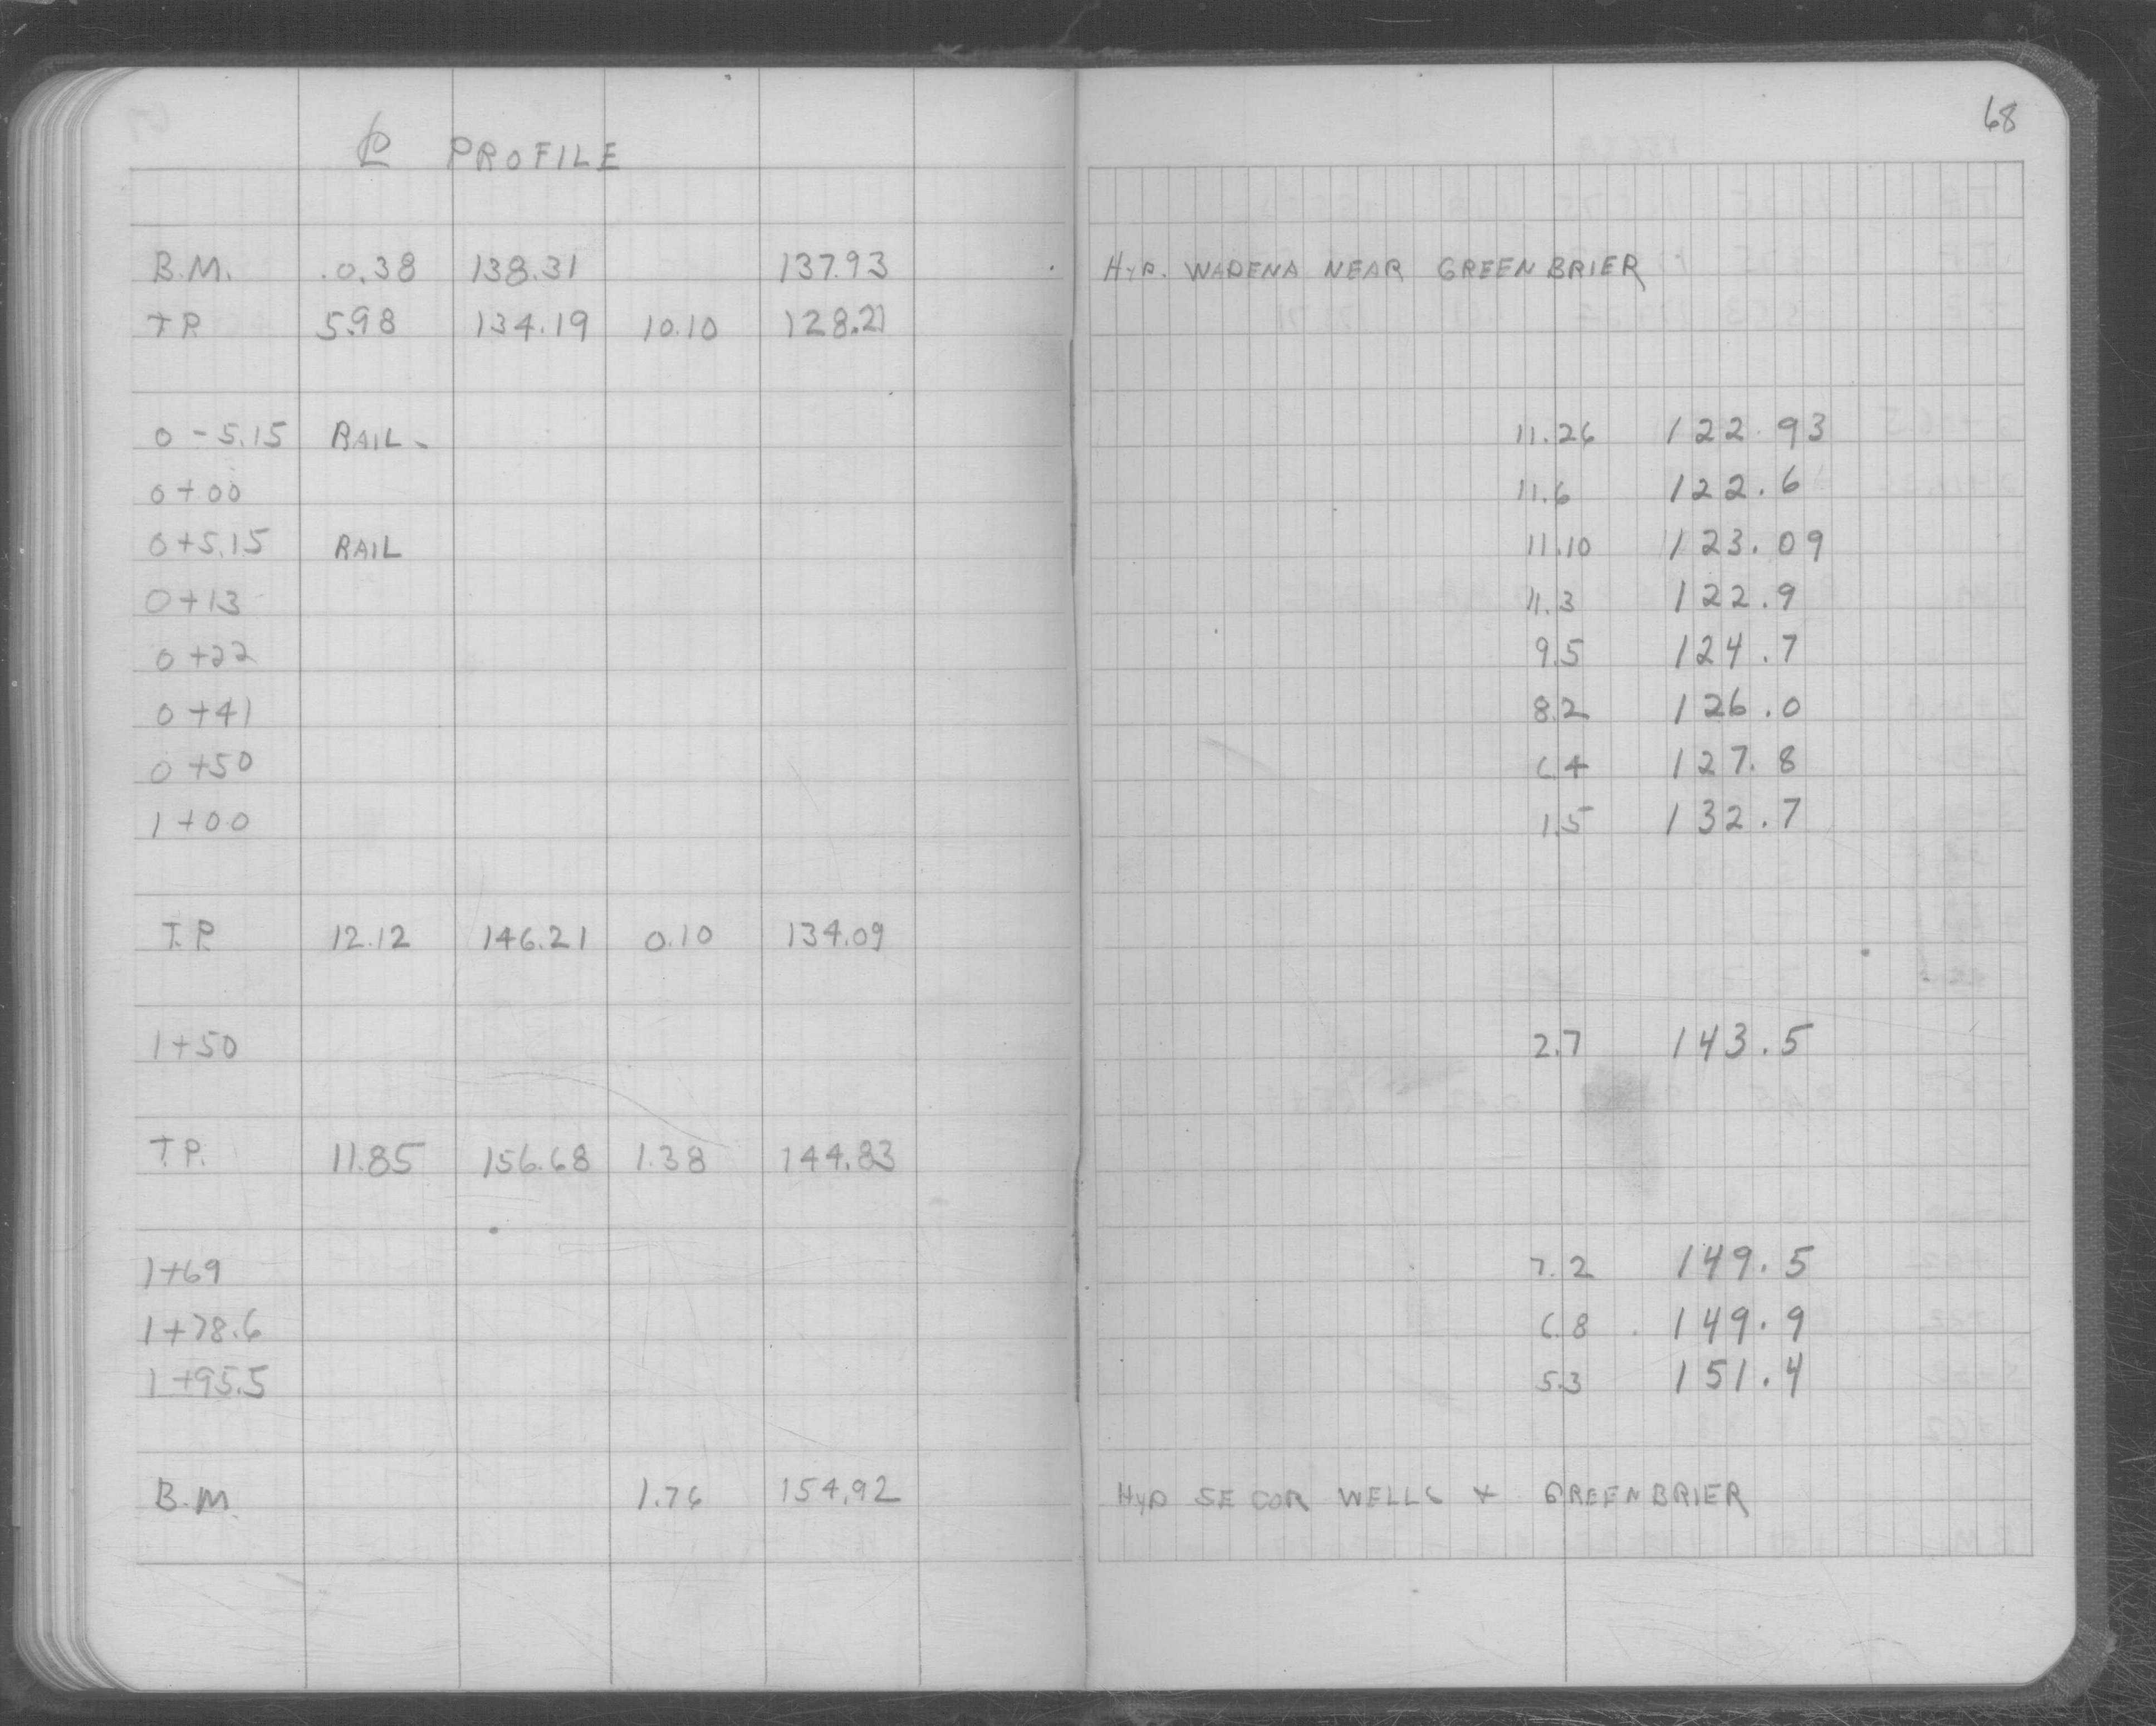 68
℄ PROFILE
B.M. 0.38 138.31 137.93 HYD. WADENA NEAR GREENBRIER
T.P. 5.98 134.19 10.10 128.21
0-5.15 RAIL 11.26 122.93
0+00 11.6 122.6
0+5.15 RAIL 11.10 123.09
0+13 11.3 122.9
0+22 9.5 124.7
0+41 8.2 126.0
0+50 6.4 127.8
1+00 1.5 132.7
T.P. 12.12 146.21 0.10 134.09
1+50 2.7 143.5
T.P. 11.85 156.68 1.38 144.83
1+69 7.2 149.5
1+78.6 6.8 149.9
1+95.5 5.3 151.4
B.M. 1.76 154.92 HYD SE COR WELLS + GREENBRIER